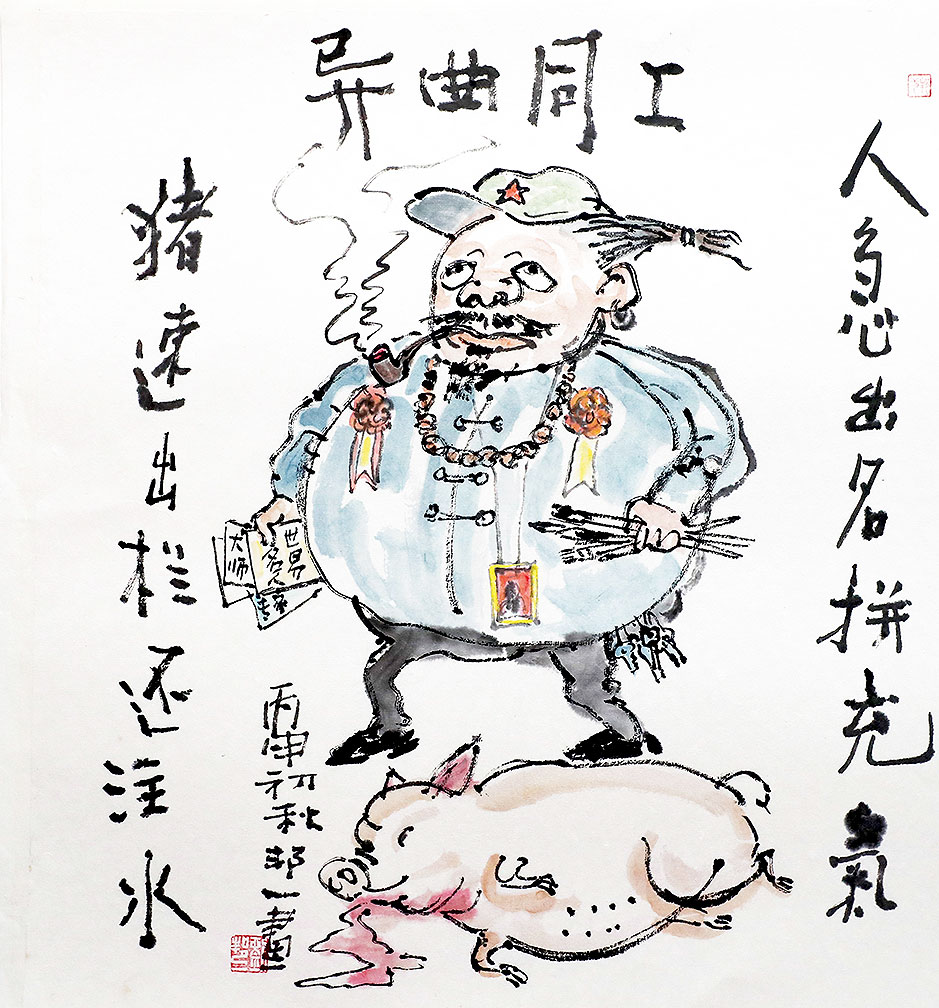 异曲同工
人急出名拼充氣
猪速出栏还注水
大师
世界
名人
丙申初秋邦一畫